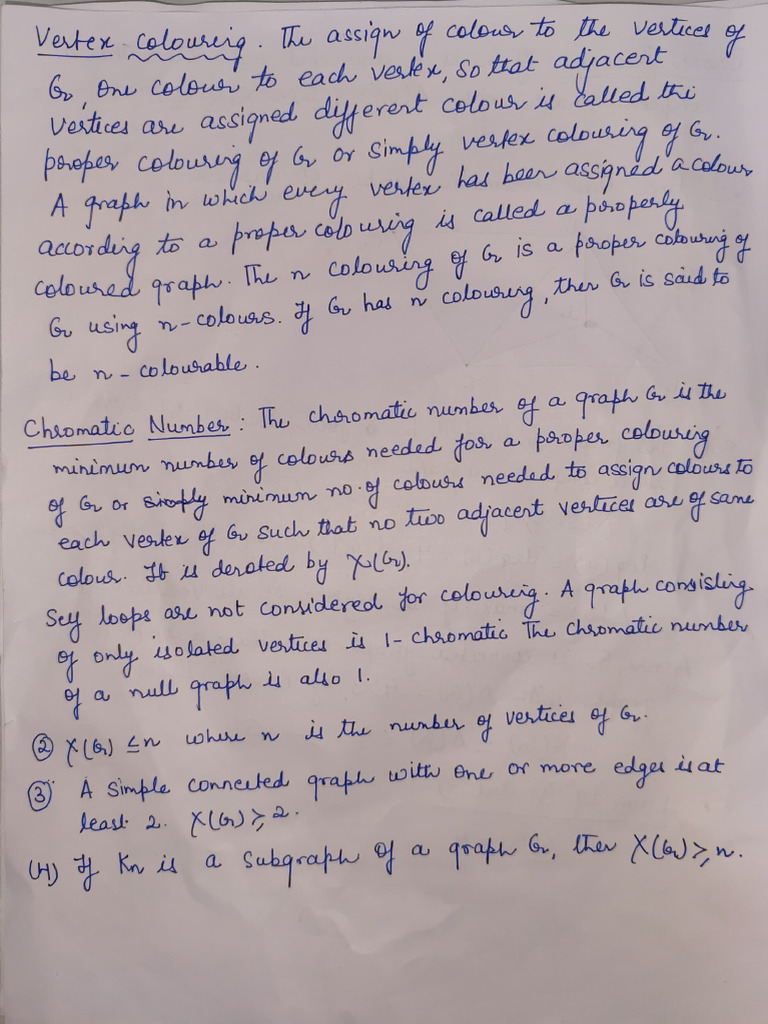 Vertex colouring. The assign of colour to the vertices of
G, one colour to each vertex, so that adjacent
vertices are assigned different colour is called the
proper colouring of G or simply vertex colouring of G.
A graph in which every vertex has been assigned a colour
according to a proper colouring is called a properly
coloured graph. The n colouring of G is a proper colouring of
G using n-colours. If G has n colouring, then G is said to
be n-colourable.
Chromatic Number: The chromatic number of a graph G is the
minimum number of colours needed for a proper colouring
of G or simply minimum no. of colours needed to assign colours to
each vertex of G such that no two adjacent vertices are of same
colour. It is denoted by χ(G).
Self loops are not considered for colouring. A graph consisting
of only isolated vertices is 1-chromatic The chromatic number
of a null graph is also 1.
② χ(G) ≤n where n is the number of vertices of G.
③ A simple connected graph with one or more edges is at
least 2. χ(G)≥2.
(4) If Kn is a subgraph of a graph G, then χ(G)≥n.